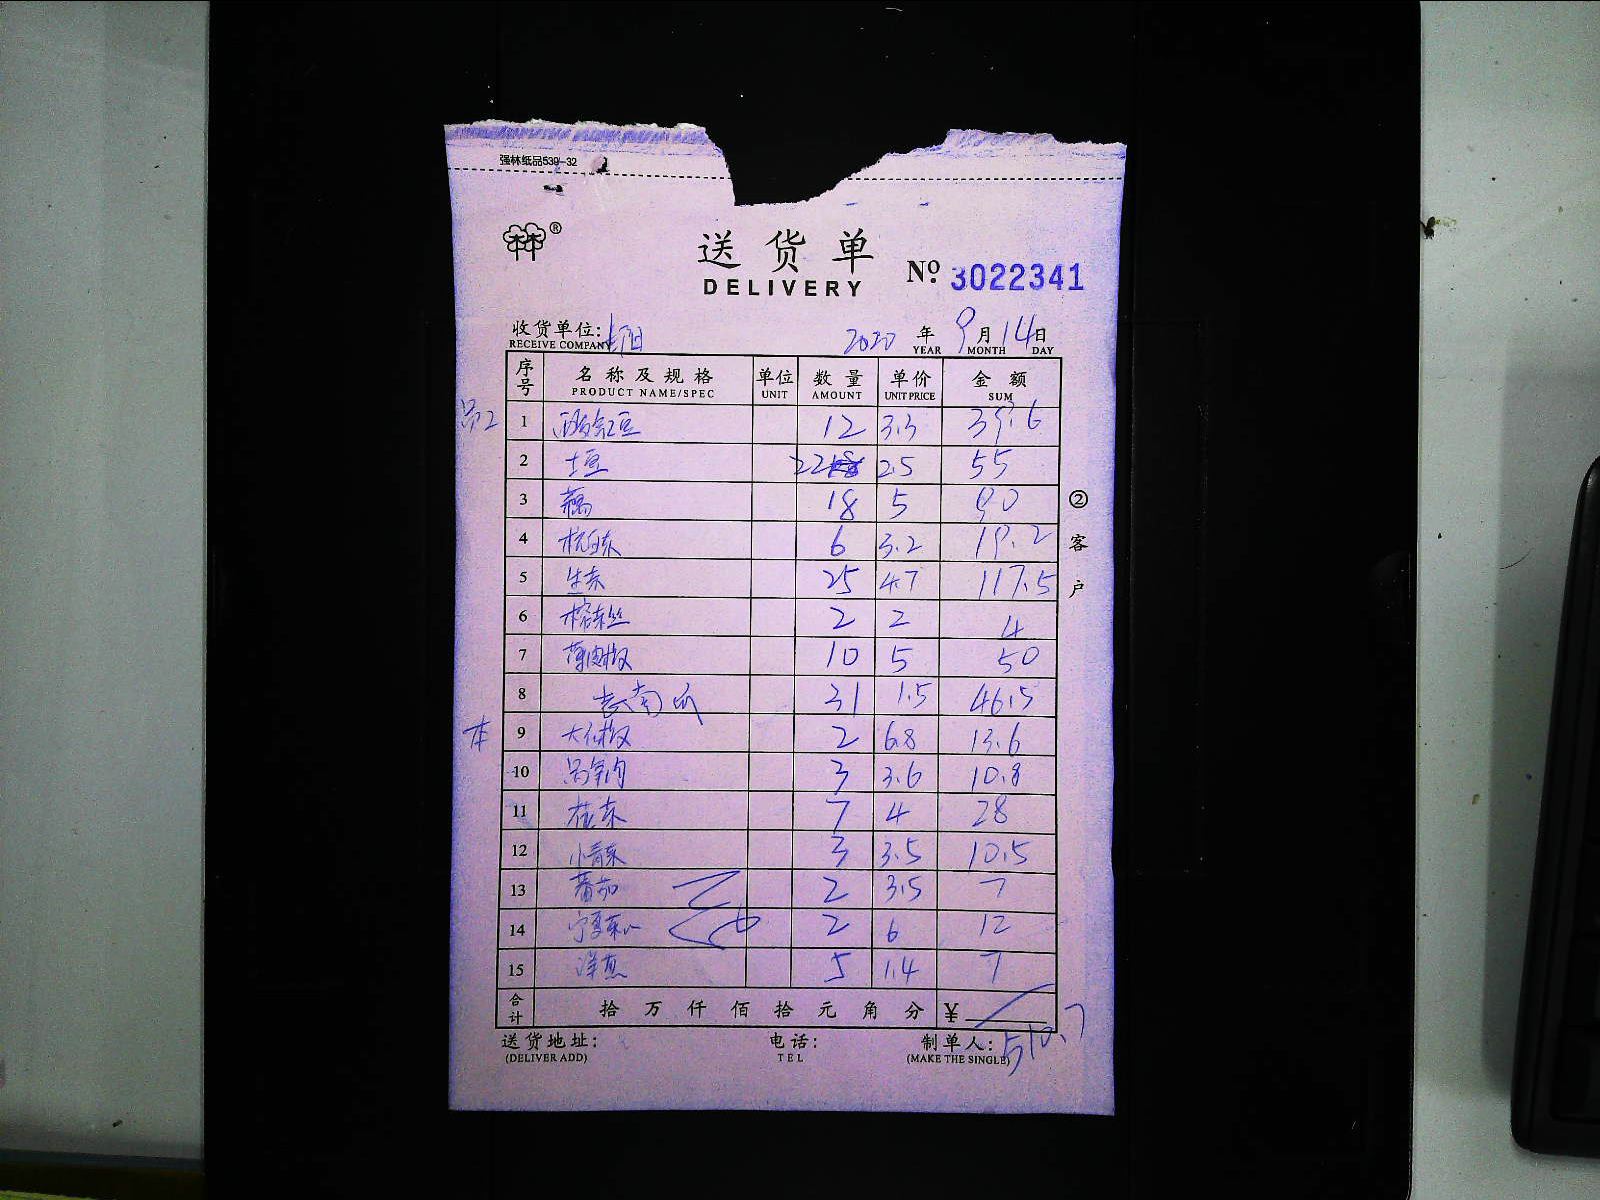 强林纸品539-32
®
送货单
DELIVERY
Nº 3022341
收货单位: 2020 年 9 月 14 日
RECEIVE COMPANY YEAR MONTH DAY
序号 名称及规格 单位 数量 单价 金额
PRODUCT NAME/SPEC UNIT AMOUNT UNIT PRICE SUM
1 12 3.3 39.6
2 土豆 22 2.5 55
3 藕 18 5 90
4 杭白菜 6 3.2 19.2
5 生菜 25 4.7 117.5
6 榨菜丝 2 2 4
7 薄肉椒 10 5 50
8 老南瓜 31 1.5 46.5
本 9 2 6.8 13.6
10 3 3.6 10.8
11 花菜 7 4 28
12 小青菜 3 3.5 10.5
13 蕃茄 2 3.5 7
14 宁夏菜心 2 6 12
15 洋葱 5 1.4 7
合计 拾万仟佰拾元角分 ¥ 510.7
送货地址: 电话: 制单人:
(DELIVER ADD) TEL (MAKE THE SINGLE)
②客户